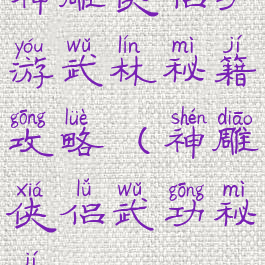 神雕侠侣
yóu wǔ lín mì jí
游武林秘籍
gōng lüè shén diāo
攻略（神雕
xiá lǚ wǔ gōng mì
侠侣武功秘
jí